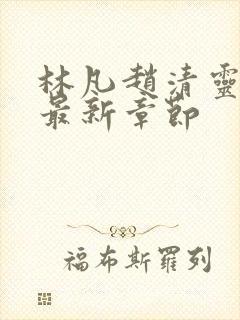 林凡趙清靈
最新章節
福布斯羅列